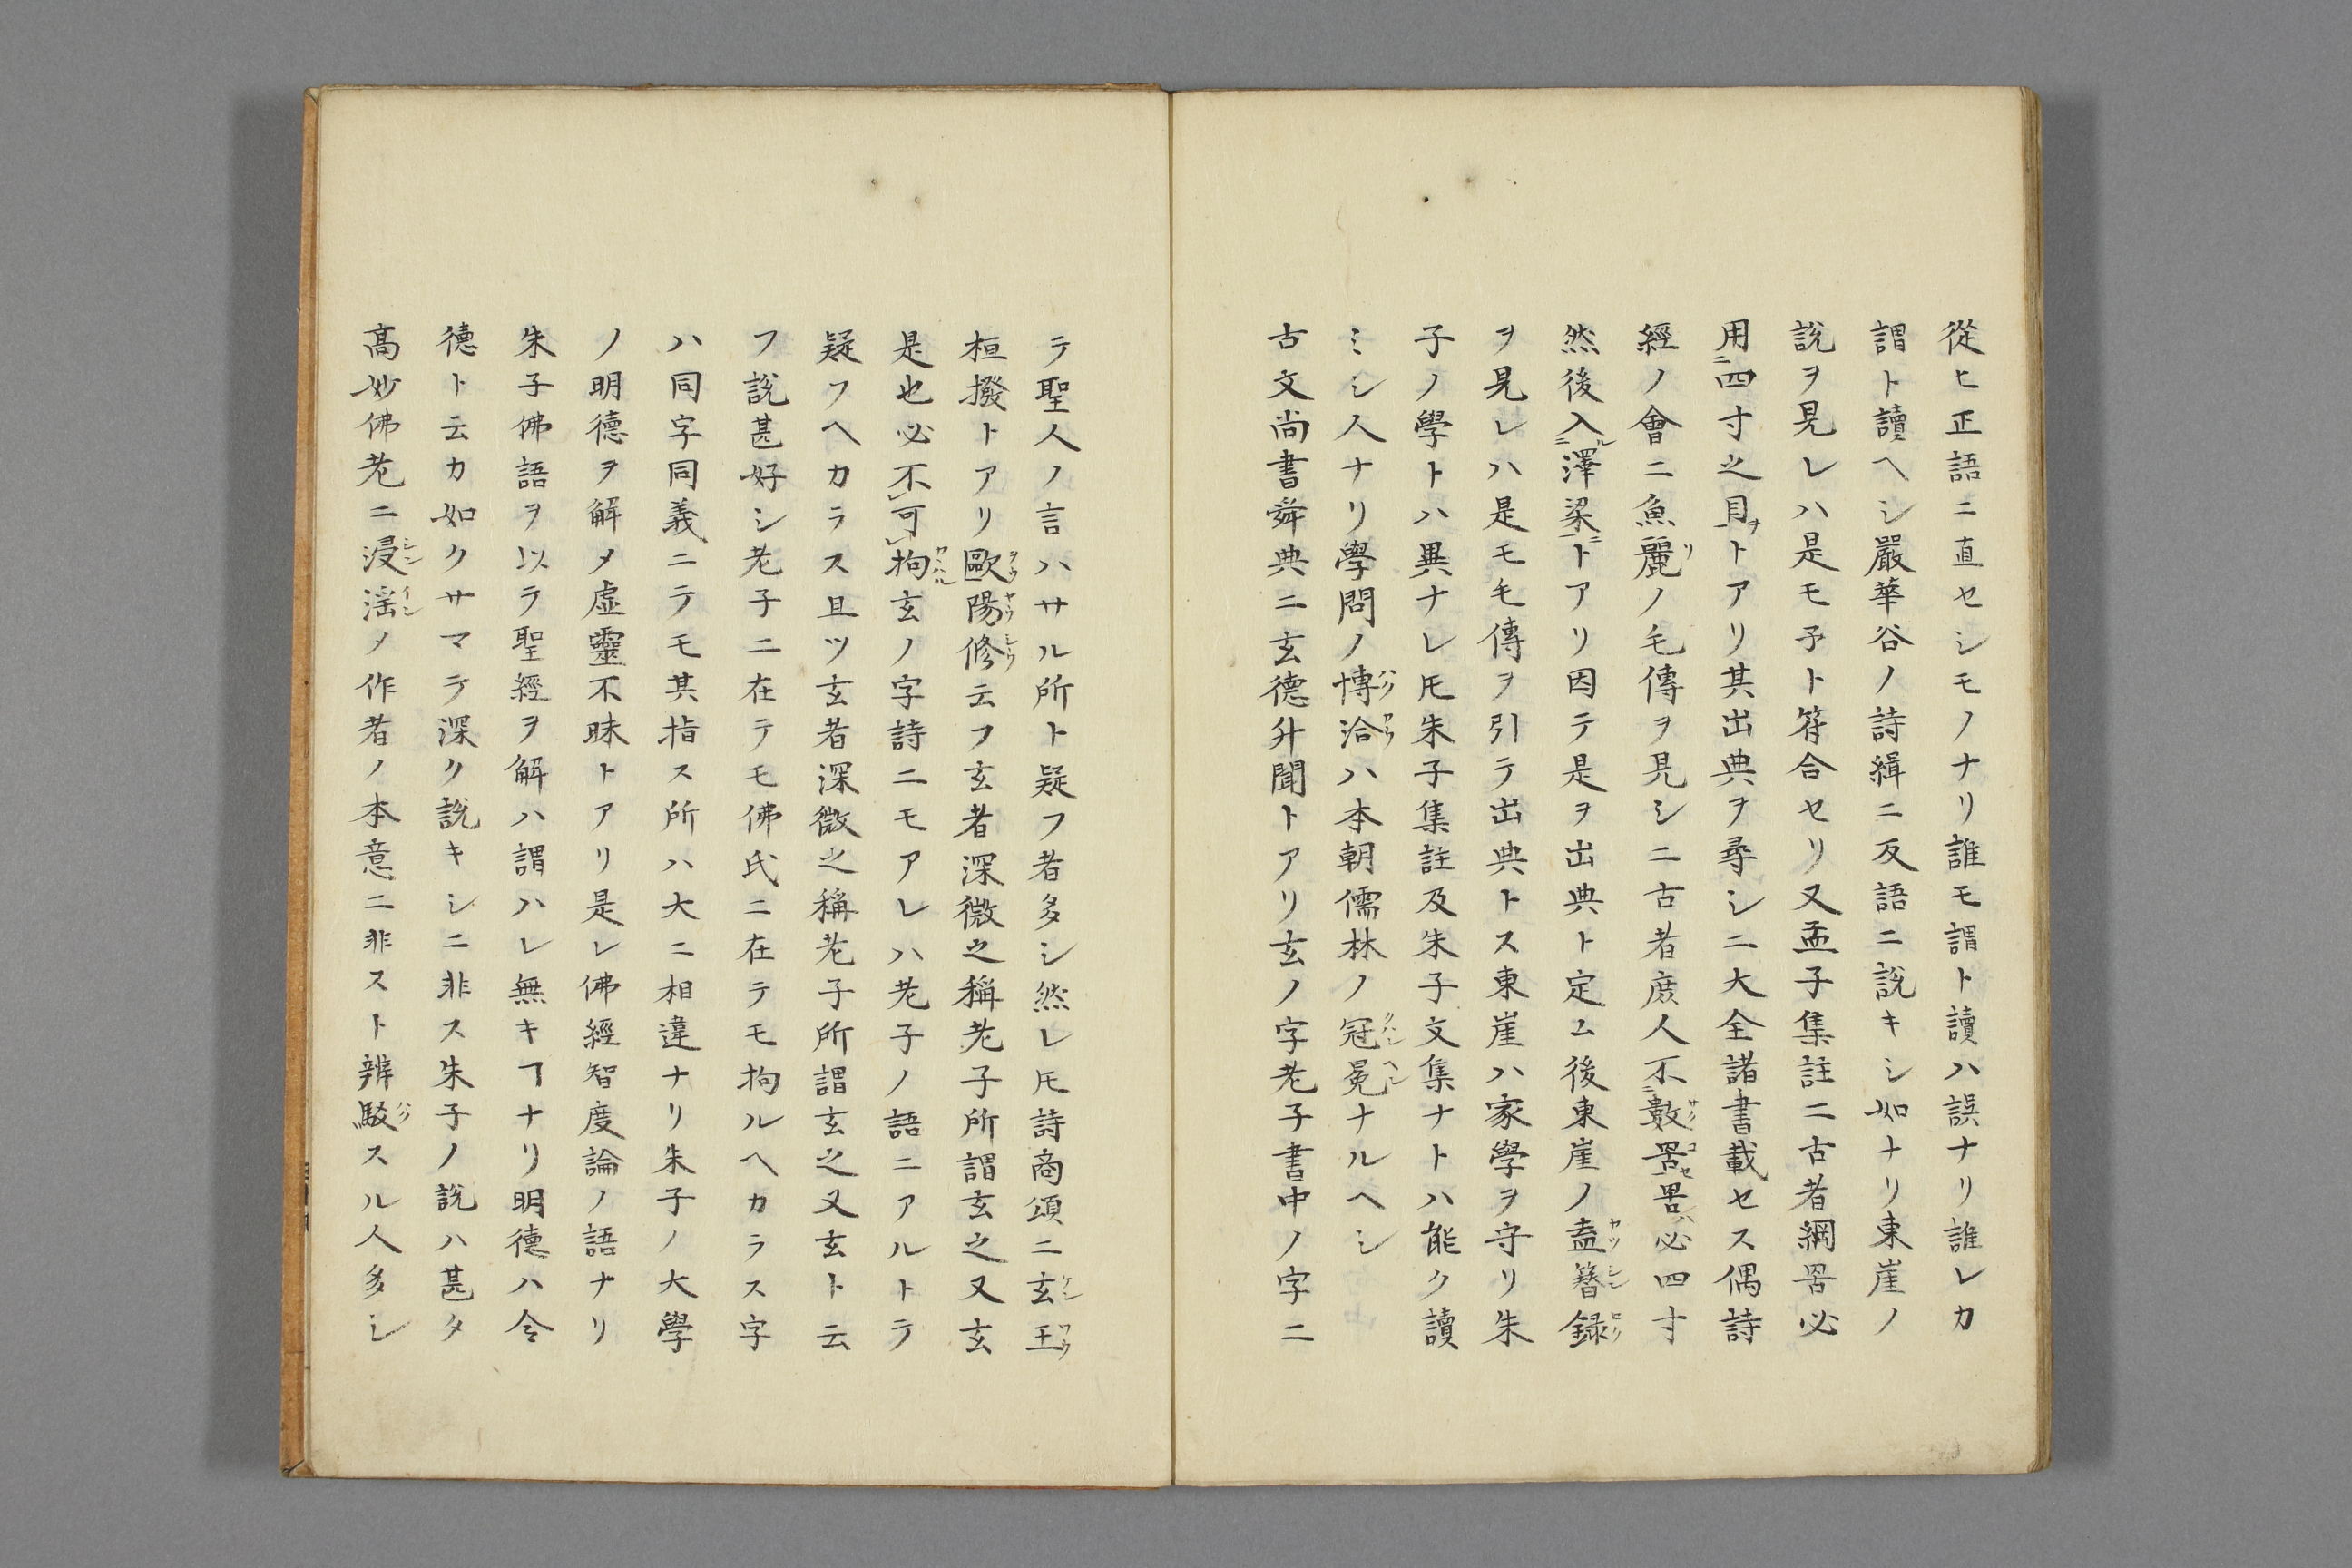 從ヒ正語ニ直セシモノナリ誰モ謂ト讀ハ誤ナリ誰レカ
謂ト讀ヘシ嚴華谷ノ詩緝ニ反語ニ說キシ如ナリ東崖ノ
說ヲ見レハ是モ予ト符合セリ又孟子集註ニ古者網罟必
用ニ四寸之目ヲトアリ其出典ヲ尋シニ大全諸書載セス偶詩
經ノ會ニ魚麗リノ毛傳ヲ見シニ古者庶人不ニ數サク罟コセ罟ハ必四寸
然後入ルニ澤梁ニトアリ因テ是ヲ出典ト定ム後東崖ノ盍カツ簪シン録ロク
ヲ見レハ是モ毛傳ヲ引テ出典トス東崖ハ家學ヲ守リ朱
子ノ學トハ異ナレ𪜈朱子集註及朱子文集ナトハ能ク讀
ミシ人ナリ學問ノ博ハク洽カウハ本朝儒林ノ冠クハン冕ヘンナルヘシ
古文尚書舜典ニ玄德升聞トアリ玄ノ字老子書中ノ字ニ
テ聖人ノ言ハサル所ト疑フ者多シ然レ𪜈詩商頌ニ玄ケン王ワウ
桓撥トアリ歐ヲウ陽ヤウ修シウ云フ玄者深微之稱老子所謂玄之又玄
是也必不レ可レ拘カヽハル玄ノ字詩ニモアレハ老子ノ語ニアルトテ
疑フヘカラス且ツ玄者深微之稱老子所謂玄之又玄ト云
フ說甚好シ老子ニ在テモ佛氏ニ在テモ拘ルヘカラス字
ハ同字同義ニテモ其指ス所ハ大ニ相違ナリ朱子ノ大學
ノ明德ヲ解メ虛靈不昧トアリ是レ佛經智度論ノ語ナリ
朱子佛語ヲ以テ聖經ヲ解ハ謂ハレ無キヿナリ明德ハ令
德ト云カ如クサマテ深ク說キシニ非ス朱子ノ說ハ甚タ
高妙佛老ニ浸シン淫インメ作者ノ本意ニ非スト辨駁ハクスル人多シ